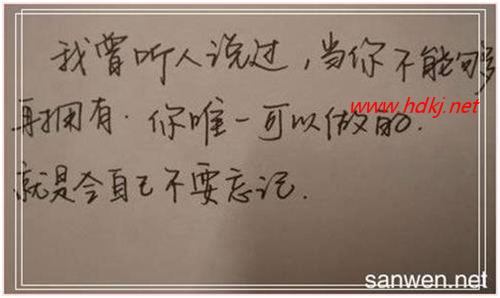 我曾听人说过，当你不能够
再拥有．你唯一可以做的．
就是令自己不要忘记．
www.hdkj.net
sanwen.net